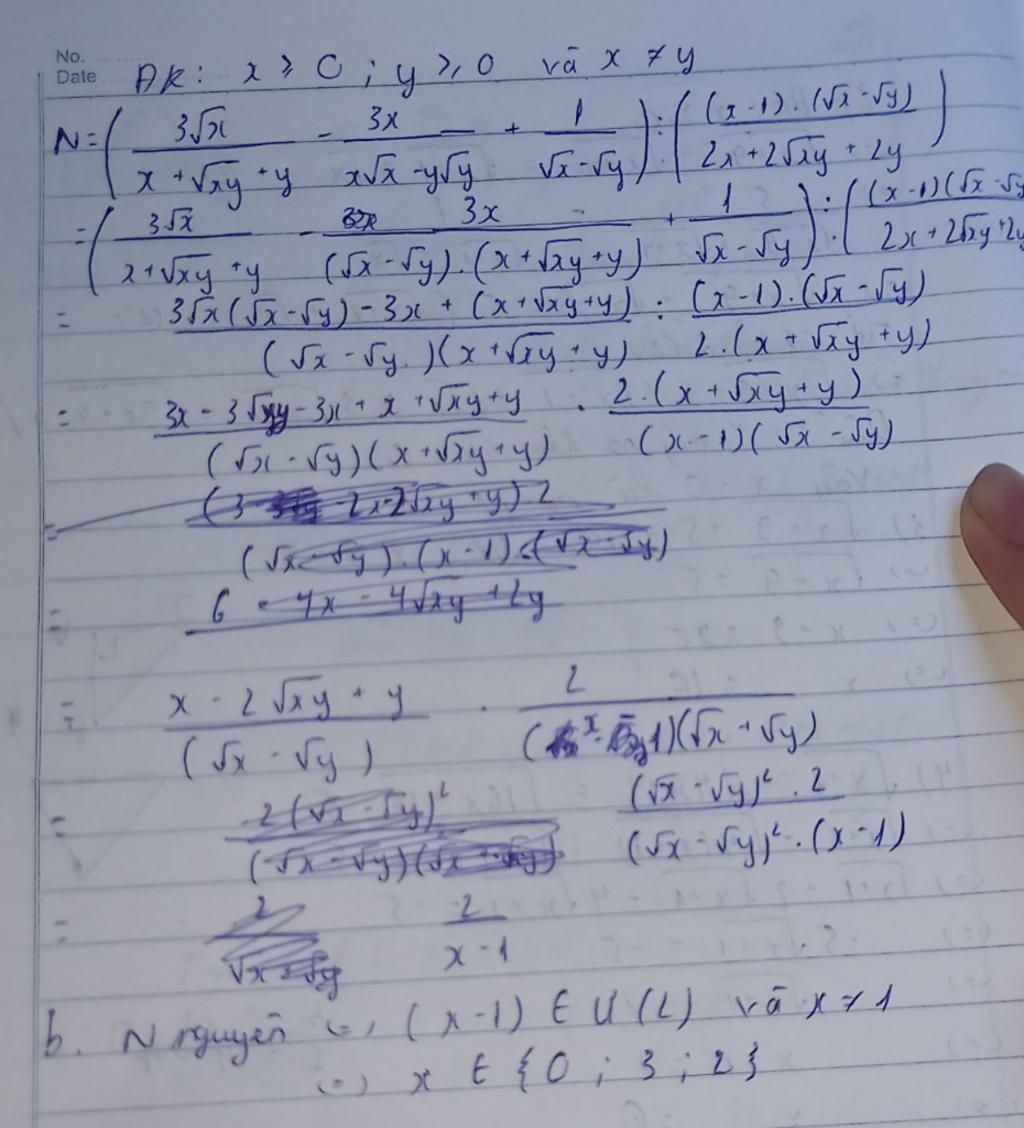 No.
Date
ĐK: x ≥ 0 ; y ≥ 0 và x ≠ y
N = ( 3√x / (x + √xy + y) - 3x / (x√x - y√y) + 1 / (√x - √y) ) : ( (x-1).(√x - √y) / (2x + 2√xy + 2y) )
= ( 3√x / (x + √xy + y) - 3x / ((√x - √y).(x + √xy + y)) + 1 / (√x - √y) ) : ( (x-1)(√x - √y / 2x + 2√xy + 2y
= (3√x(√x - √y) - 3x + (x + √xy + y)) / ((√x - √y)(x + √xy + y)) : ((x-1).(√x - √y)) / (2.(x + √xy + y))
= (3x - 3√xy - 3x + x + √xy + y) / ((√x - √y)(x + √xy + y)) . (2.(x + √xy + y)) / ((x-1)(√x - √y))
= (x - 2√xy + y) / (√x - √y) . 2 / ((x-1)(√x - √y))
= ((√x - √y)² . 2) / ((√x - √y)² . (x-1))
= 2 / (x-1)
b. N nguyên <=> (x-1) ∈ Ư(2) và x ≠ 1
<=> x ∈ {0 ; 3 ; 2}